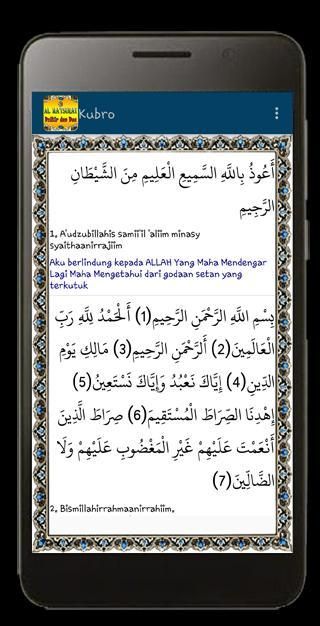 AL MA'TSURAT
Dzikir dan Doa
Kubro
أَعُوذُ بِاللَّهِ السَّمِيعِ الْعَلِيمِ مِنَ الشَّيْطَانِ
الرَّجِيمِ
1, A'udzubillahis samii'il 'aliim minasy
syaithaanirrajiim
Aku berlindung kepada ALLAH Yang Maha Mendengar
Lagi Maha Mengetahui dari godaan setan yang
terkutuk
بِسْمِ اللَّهِ الرَّحْمَنِ الرَّحِيمِ(1) أَلْحَمْدُ لِلَّهِ رَبِّ
الْعَالَمِينَ(2) أَلرَّحْمَنِ الرَّحِيمِ(3) مَالِكِ يَوْمِ
الدِّينِ(4) إِيَّاكَ نَعْبُدُ وَإِيَّاكَ نَسْتَعِينُ(5)
إِهْدِنَا الصِّرَاطَ الْمُسْتَقِيمَ(6) صِرَاطَ الَّذِينَ
أَنْعَمْتَ عَلَيْهِمْ غَيْرِ الْمَغْضُوبِ عَلَيْهِمْ وَلَا
الضَّالِّينَ(7)
2, Bismillahirrahmaanirrahiim,